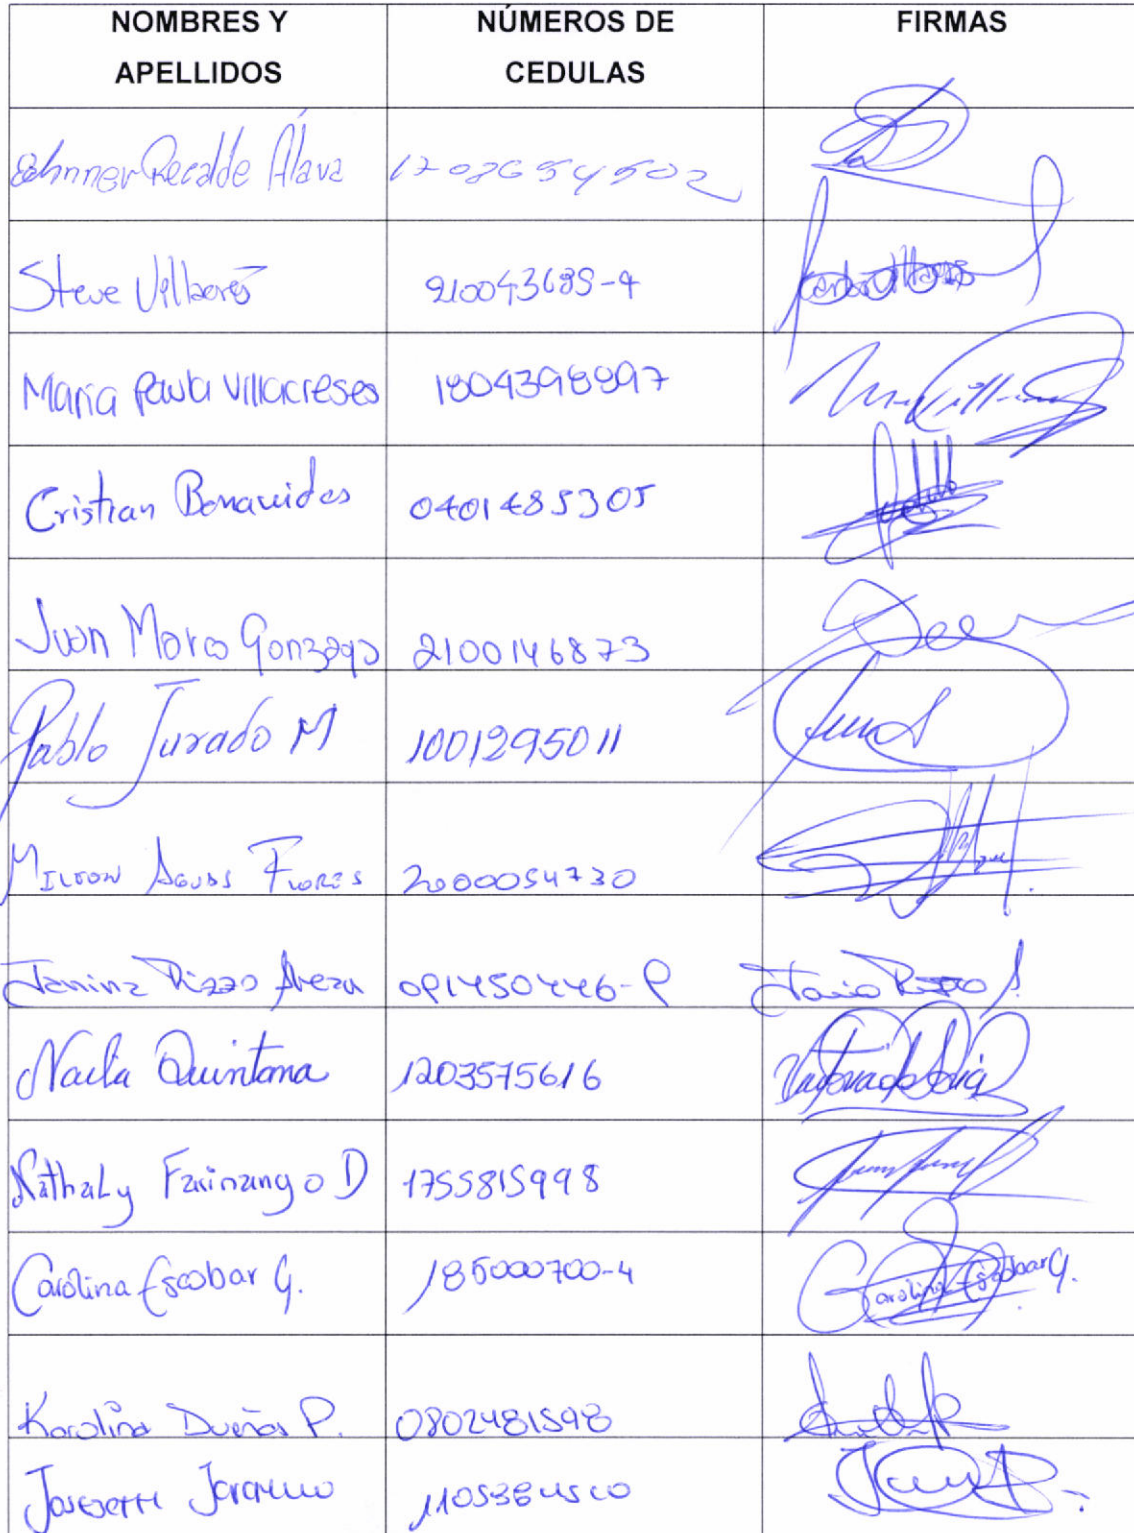 NOMBRES Y APELLIDOS NÚMEROS DE CEDULAS FIRMAS
Recalde Álava 1708654502
Steve Villacrés 210043689-4
María Paula Villacreses 1804398897
Cristian Benavides 0401485305
Juan Marco Gonzaga 2100146873
Pablo Jurado M 1001295011
Milton Aguas Flores 2000054730
Janina Rizzo 
Naila Quintana 1203575616
Nathaly Farinango D 1755815998
Carolina Escobar G. 185000700-4 Carolina Escobar G.
Karolina Dueñas P. 0802481598
Jaramillo